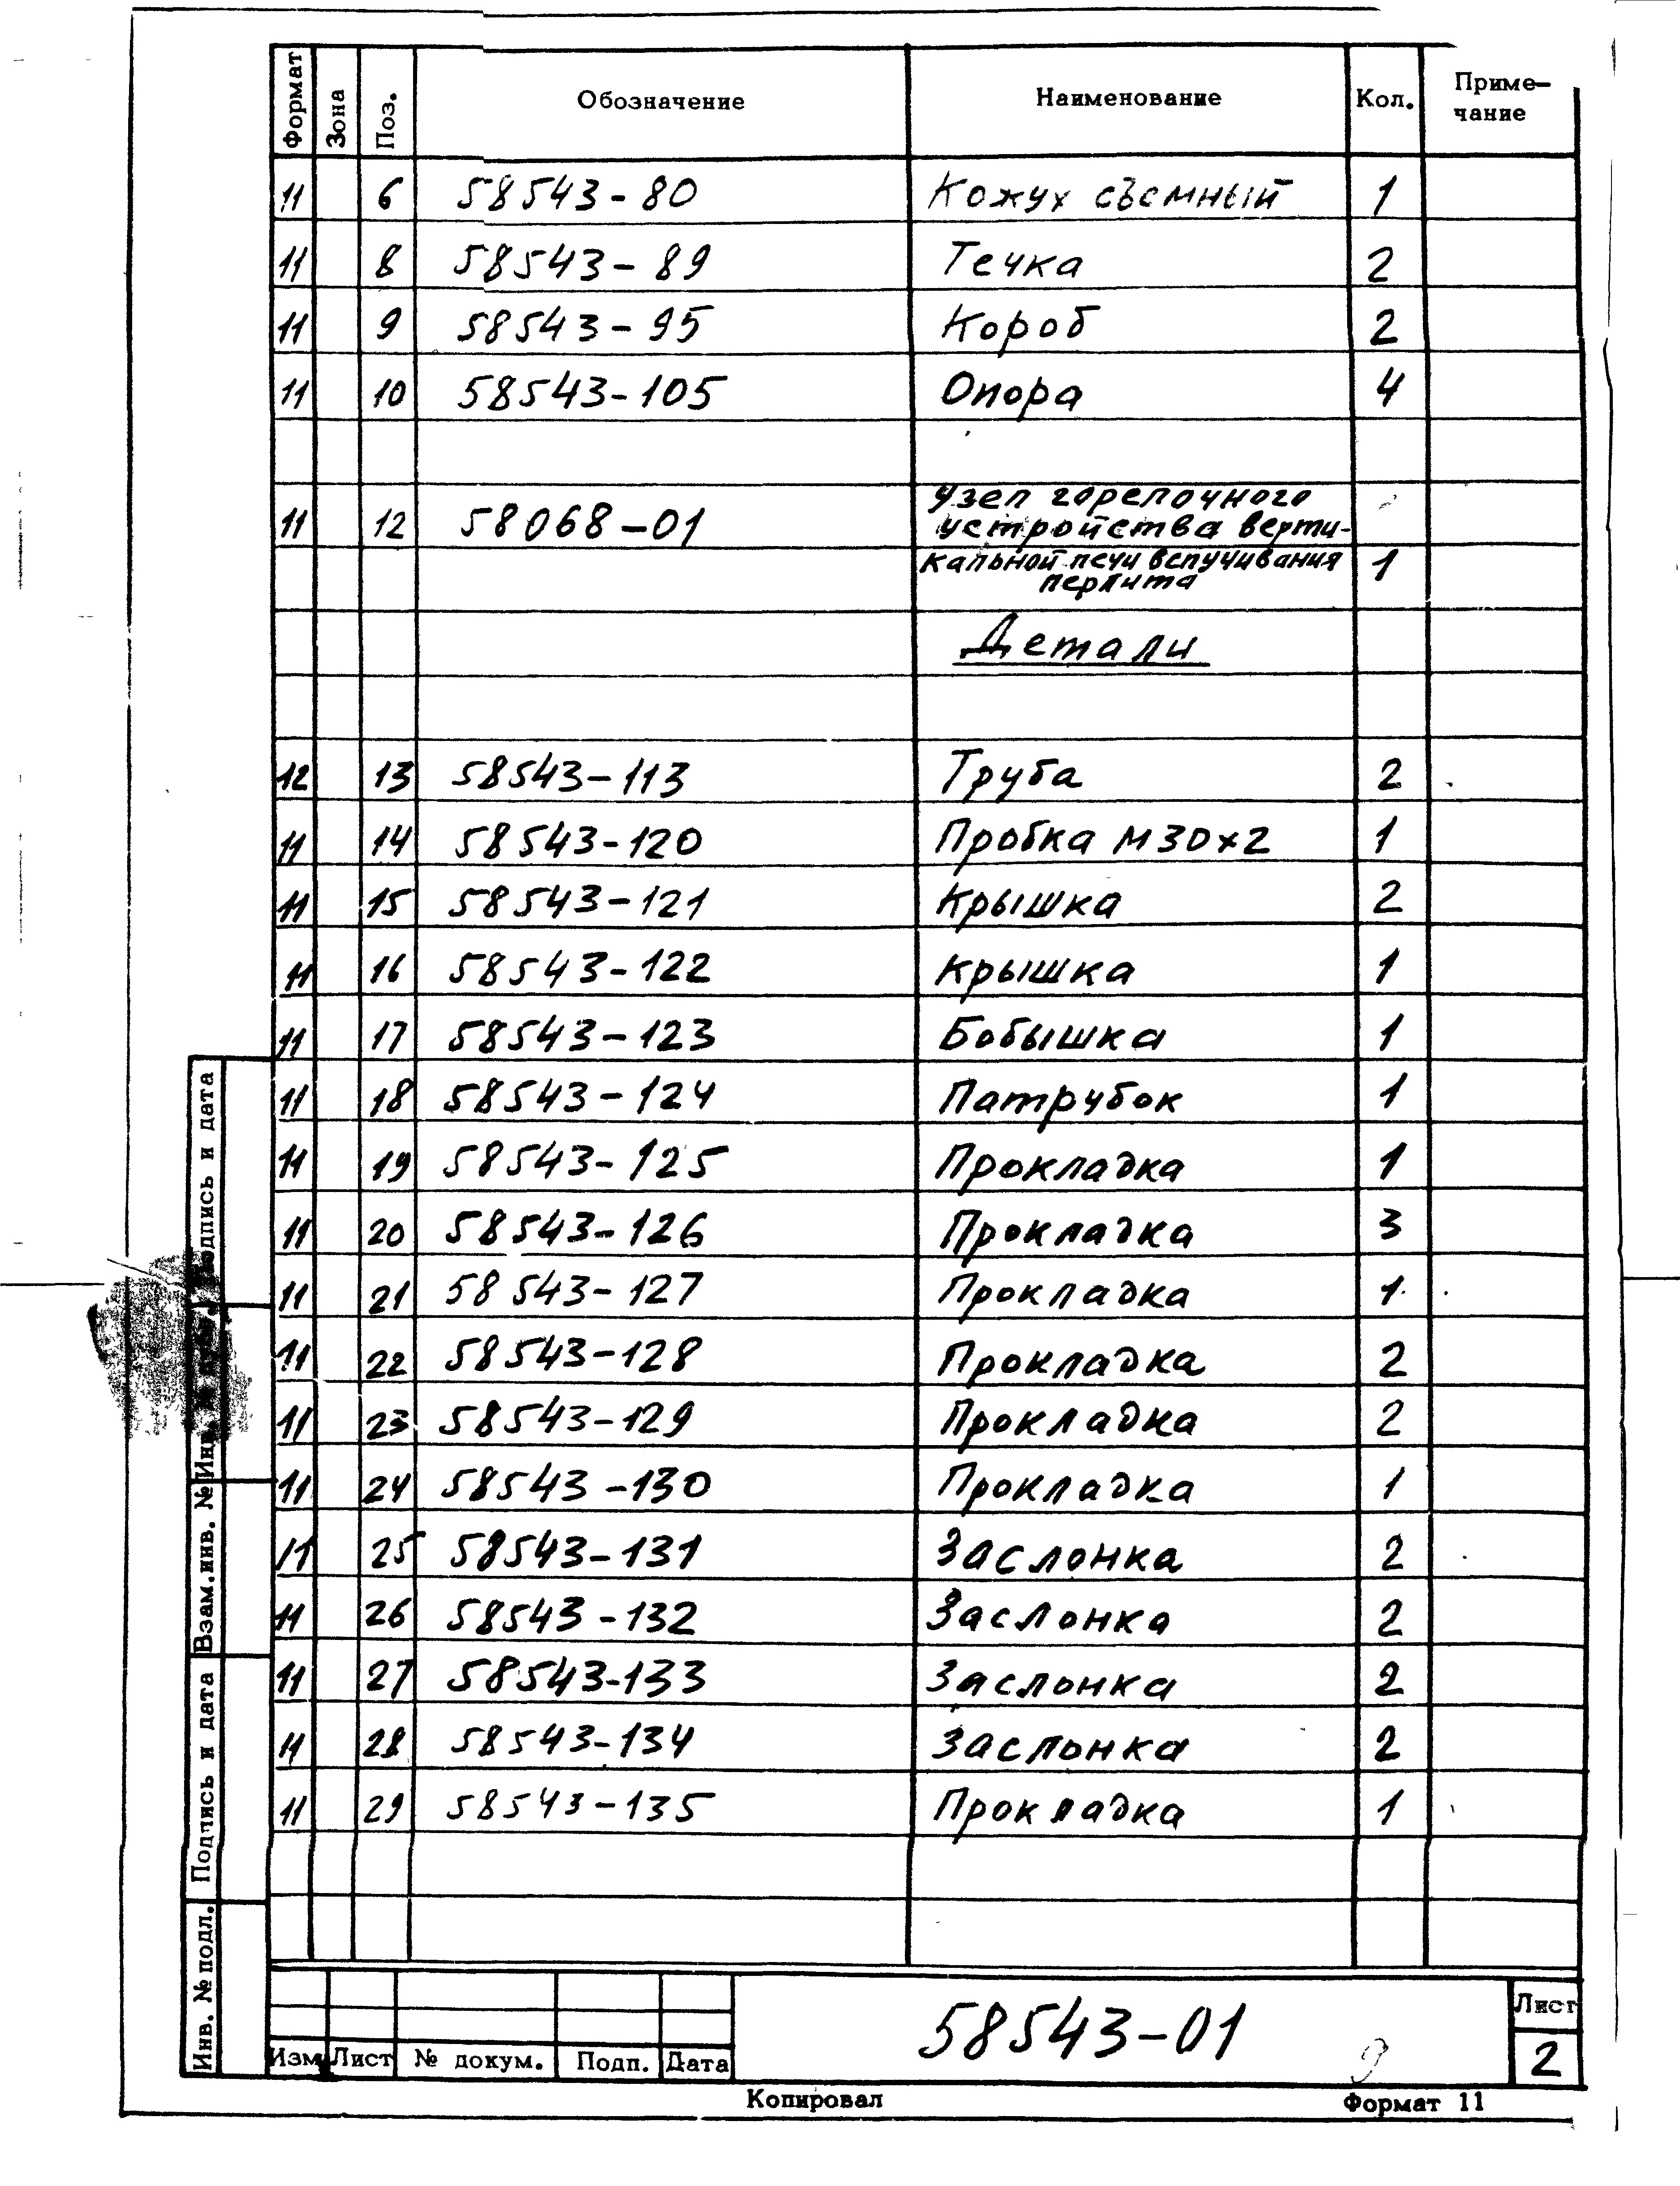 Формат Зона Поз. Обозначение Наименование Кол. Приме-
чание
11 6 58543-80 Кожух съемный 1
11 8 58543-89 Течка 2
11 9 58543-95 Короб 2
11 10 58543-105 Опора 4
узел горелочного
11 12 58068-01 устройства верти-
кальной печи вспучивания 1
перлита
Детали
12 13 58543-113 Труба 2
11 14 58543-120 Пробка М30х2 1
11 15 58543-121 Крышка 2
11 16 58543-122 крышка 1
11 17 58543-123 Бобышка 1
11 18 58543-124 Патрубок 1
11 19 58543-125 Прокладка 1
11 20 58543-126 Прокладка 3
11 21 58543-127 Прокладка 1
11 22 58543-128 Прокладка 2
11 23 58543-129 Прокладка 2
11 24 58543-130 Прокладка 1
11 25 58543-131 Заслонка 2
11 26 58543-132 Заслонка 2
11 27 58543-133 Заслонка 2
11 28 58543-134 Заслонка 2
11 29 58543-135 Прокладка 1
Подпись и дата
Инв. №
Взам.инв. №
Подпись и дата
Инв. № подл.
Изм Лист № докум. Подп. Дата
58543-01
Лист
2
9
Копировал Формат 11